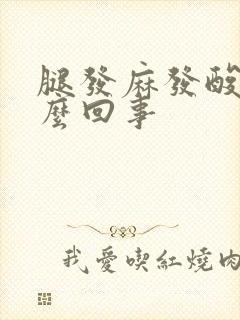 腿發麻發酸
麼回事
我愛喫紅燒肉